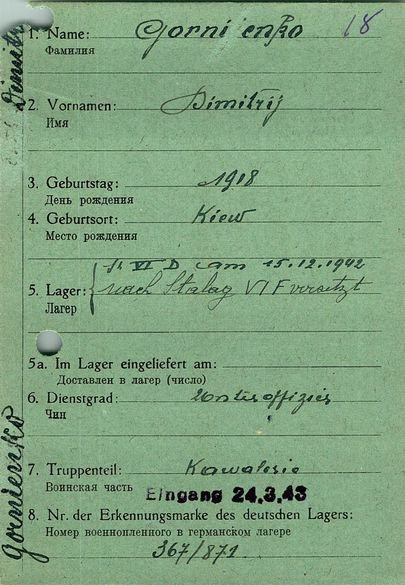 1. Name: Gornijenko 18
Фамилия
2. Vornamen: Dimitrij
Имя
3. Geburtstag: 1918
День рождения
4. Geburtsort: Kiew
Место рождения
St VI D am 15.12.1942
5. Lager: { nach Stalag VI F versetzt
Лагерь
5a. Im Lager eingeliefert am:
Доставлен в лагерь (число)
6. Dienstgrad: Unteroffizier
Чин
7. Truppenteil: Kawalerie
Воинская часть Eingang 24.3.43
8. Nr. der Erkennungsmarke des deutschen Lagers:
Номер военнопленного в германском лагере
367/871
Gornienko
Dimitri